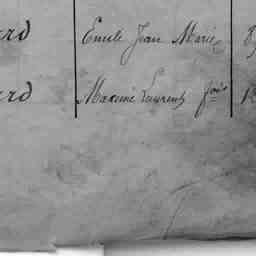 erd Emile Jean Marie
erd Maxime Laurent fois